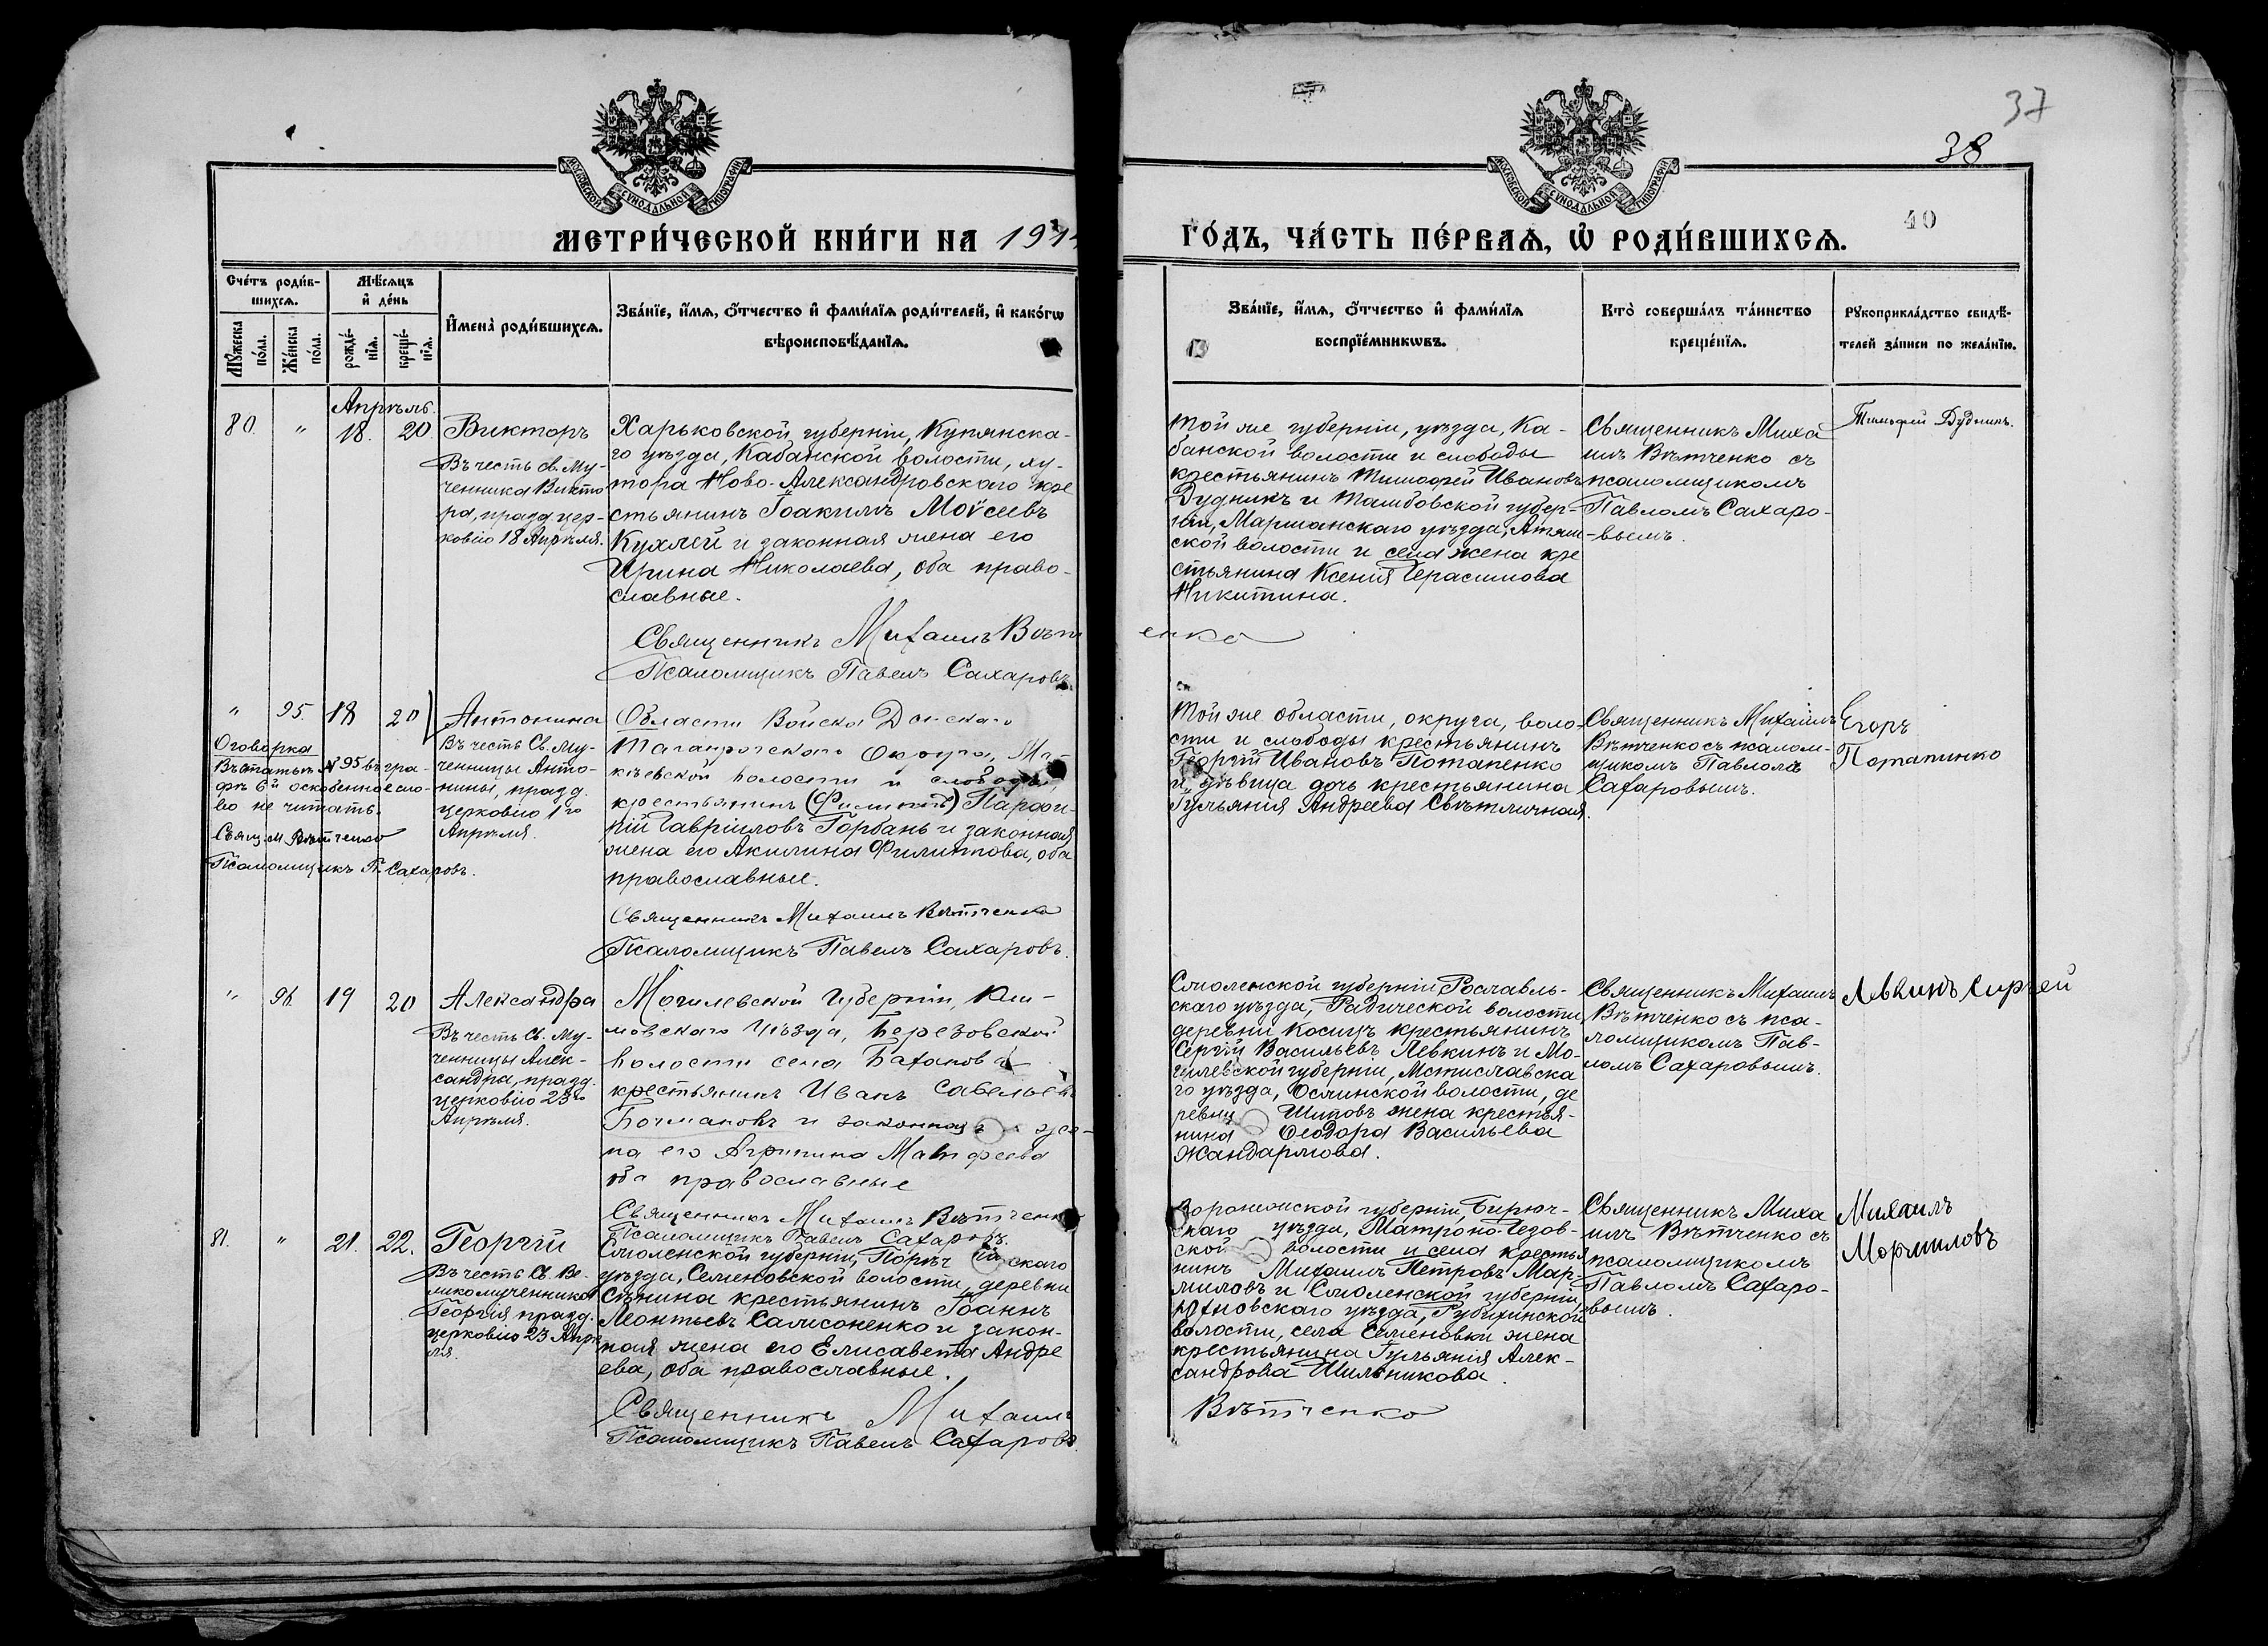 37
38
40
МОСКОВСКОЙ СѴНОДАЛЬНОЙ ТИПОГРАФІИ
МОСКОВСКОЙ СѴНОДАЛЬНОЙ ТИПОГРАФІИ
МЕТРИ́ЧЕСКОЙ КНИ́ГИ НА 1914
ГО́ДЪ, ЧА́СТЬ ПЕ́РВАѦ, Ѡ РОДИ́ВШИХСѦ.
Сче́тъ роди́в-
шихсѧ.
Мꙋ́жеска по́ла.
Же́нска по́ла.
Мѣ́сѧцъ
и де́нь
рожде́-нїѧ.
креще́-нїѧ.
Имена̀ роди́вшихсѧ.
Зва́нїе, и́мѧ, о́тчество и фами́лїѧ роди́телей, и како́гѡ
вѣроисповѣ́данїѧ.
Зва́нїе, и́мѧ, о́тчество и фами́лїѧ
воспрїе́мникѡвъ.
Кто̀ соверша́лъ та́инство
креще́нїѧ.
Рꙋкоприкла́дство свидѣ́-
телей за́писи по жела́нїю.
Апрѣль.
80. " 18. 20. Викторъ
Въ честь св. Му-
ченника Викто
ра, празд цер-
ковію 18 Апрѣля.
Харьковской губерніи, Купянска-
го уѣзда, Кабанской волости, ху-
тора Ново-Александровскаго кре
стьянинъ Іоакимъ Моѵсеевъ
Кухлей и законная жена его
Ирина Николаева, оба право-
славные.
Священникъ Михаилъ Вѣтченко
Псаломщикъ Павелъ Сахаровъ.
Той же губерніи, уѣзда, Ка-
банской волости и слободы
крестьянинъ Тимофей Ивановъ
Дудникъ и Тамбовской губер-
ніи, Маршанскаго уѣзда,
ской волости и села жена кре
стьянина Ксенія Герасимова
Никитина.
Священникъ Миха
илъ Вѣтченко съ
псаломщикомъ
Павломъ Сахаро-
вымъ.
Тимофей Дудникъ.
" 95. 18 20 Антонина
Въ честь Св. Му-
ченницы Анто-
нины, празд.
церковію 1го
Апрѣля.
Оговорка
Въ статьѣ № 95 въ гра-
фѣ 6й оскобенное сло-
во не читать.
Свящ. М. Вѣтченко
Псаломщикъ П. Сахаровъ.
Области Войска Донскаго
Таганрогскаго Округа,
кѣевской волости и слободы,
крестьянинъ (Филиппъ) Парфи-
ній Гавріиловъ Горбань и законная
жена его Акилина Филиппова, оба
православные.
Священникъ Михаилъ Вѣтченко
Псаломщикъ Павелъ Сахаровъ.
Той же области, округа, воло-
сти и слободы крестьянинъ
Георгій Ивановъ Потапенко
и дѣвица дочь крестьянина
Іульянія Андреева Свѣтличная.
Священникъ Михаилъ
Вѣтченко съ псалом-
щикомъ Павломъ
Сахаровымъ.
Егоръ
Потапинко
" 96. 19 20 Александра
Въ честь Св. Му-
ченницы Алек-
сандра, празд.
церковію 23го
Апрѣля.
Могилевской Губерніи, Кли-
мовскаго Уѣзда, Березовской
волости села Батанова
крестьянинъ Иванъ Савельевъ
Бочмановъ и законная же-
на его Агрипина Матфеева
оба православные
Священникъ Михаилъ Вѣтченко
Псаломщикъ Павелъ Сахаровъ.
Смоленской губерніи Рославль-
скаго уѣзда, Радической волости,
деревни Косицъ крестьянинъ
Сергій Васильевъ Левкинъ и Мо-
гилевской губерніи, Мстиславска
го уѣзда, Ослинской волости, де
ревни Шиповъ жена крестья-
нина Ѳеодора Васильева
Жандармова.
Священникъ Михаилъ
Вѣтченко съ пса-
ломщикомъ Пав-
ломъ Сахаровымъ.
Левкинъ Сиргей
81. " 21. 22. Георгій
Въ честь Св. Ве-
ликомученника
Георгія празд.
церковію 23 Апрѣ
ля.
Смоленской губерніи, Порѣч скаго
уѣзда, Семеновской волости, деревни
Сѣнина крестьянинъ Іоаннъ
Леонтьевъ Самсоненко и закон-
ная жена его Елисавета Андре
ева, оба православные.
Священникъ Михаилъ Вѣтченко
Псаломщикъ Павелъ Сахаровъ.
Воронежской губерніи, Бирюч-
скаго уѣзда, Матроно-Гезов-
ской волости и села крестья
нинъ Михаилъ Петровъ Мар-
миловъ и Смоленской губерніи,
Юхновскаго уѣзда, Рубихинской
волости, села Семеновки жена
крестьянина Іульянія Алек-
сандрова Шильникова.
Священникъ Миха
илъ Вѣтченко съ
псаломщикомъ
Павломъ Сахаро-
вымъ.
Михаилъ
Мормиловъ